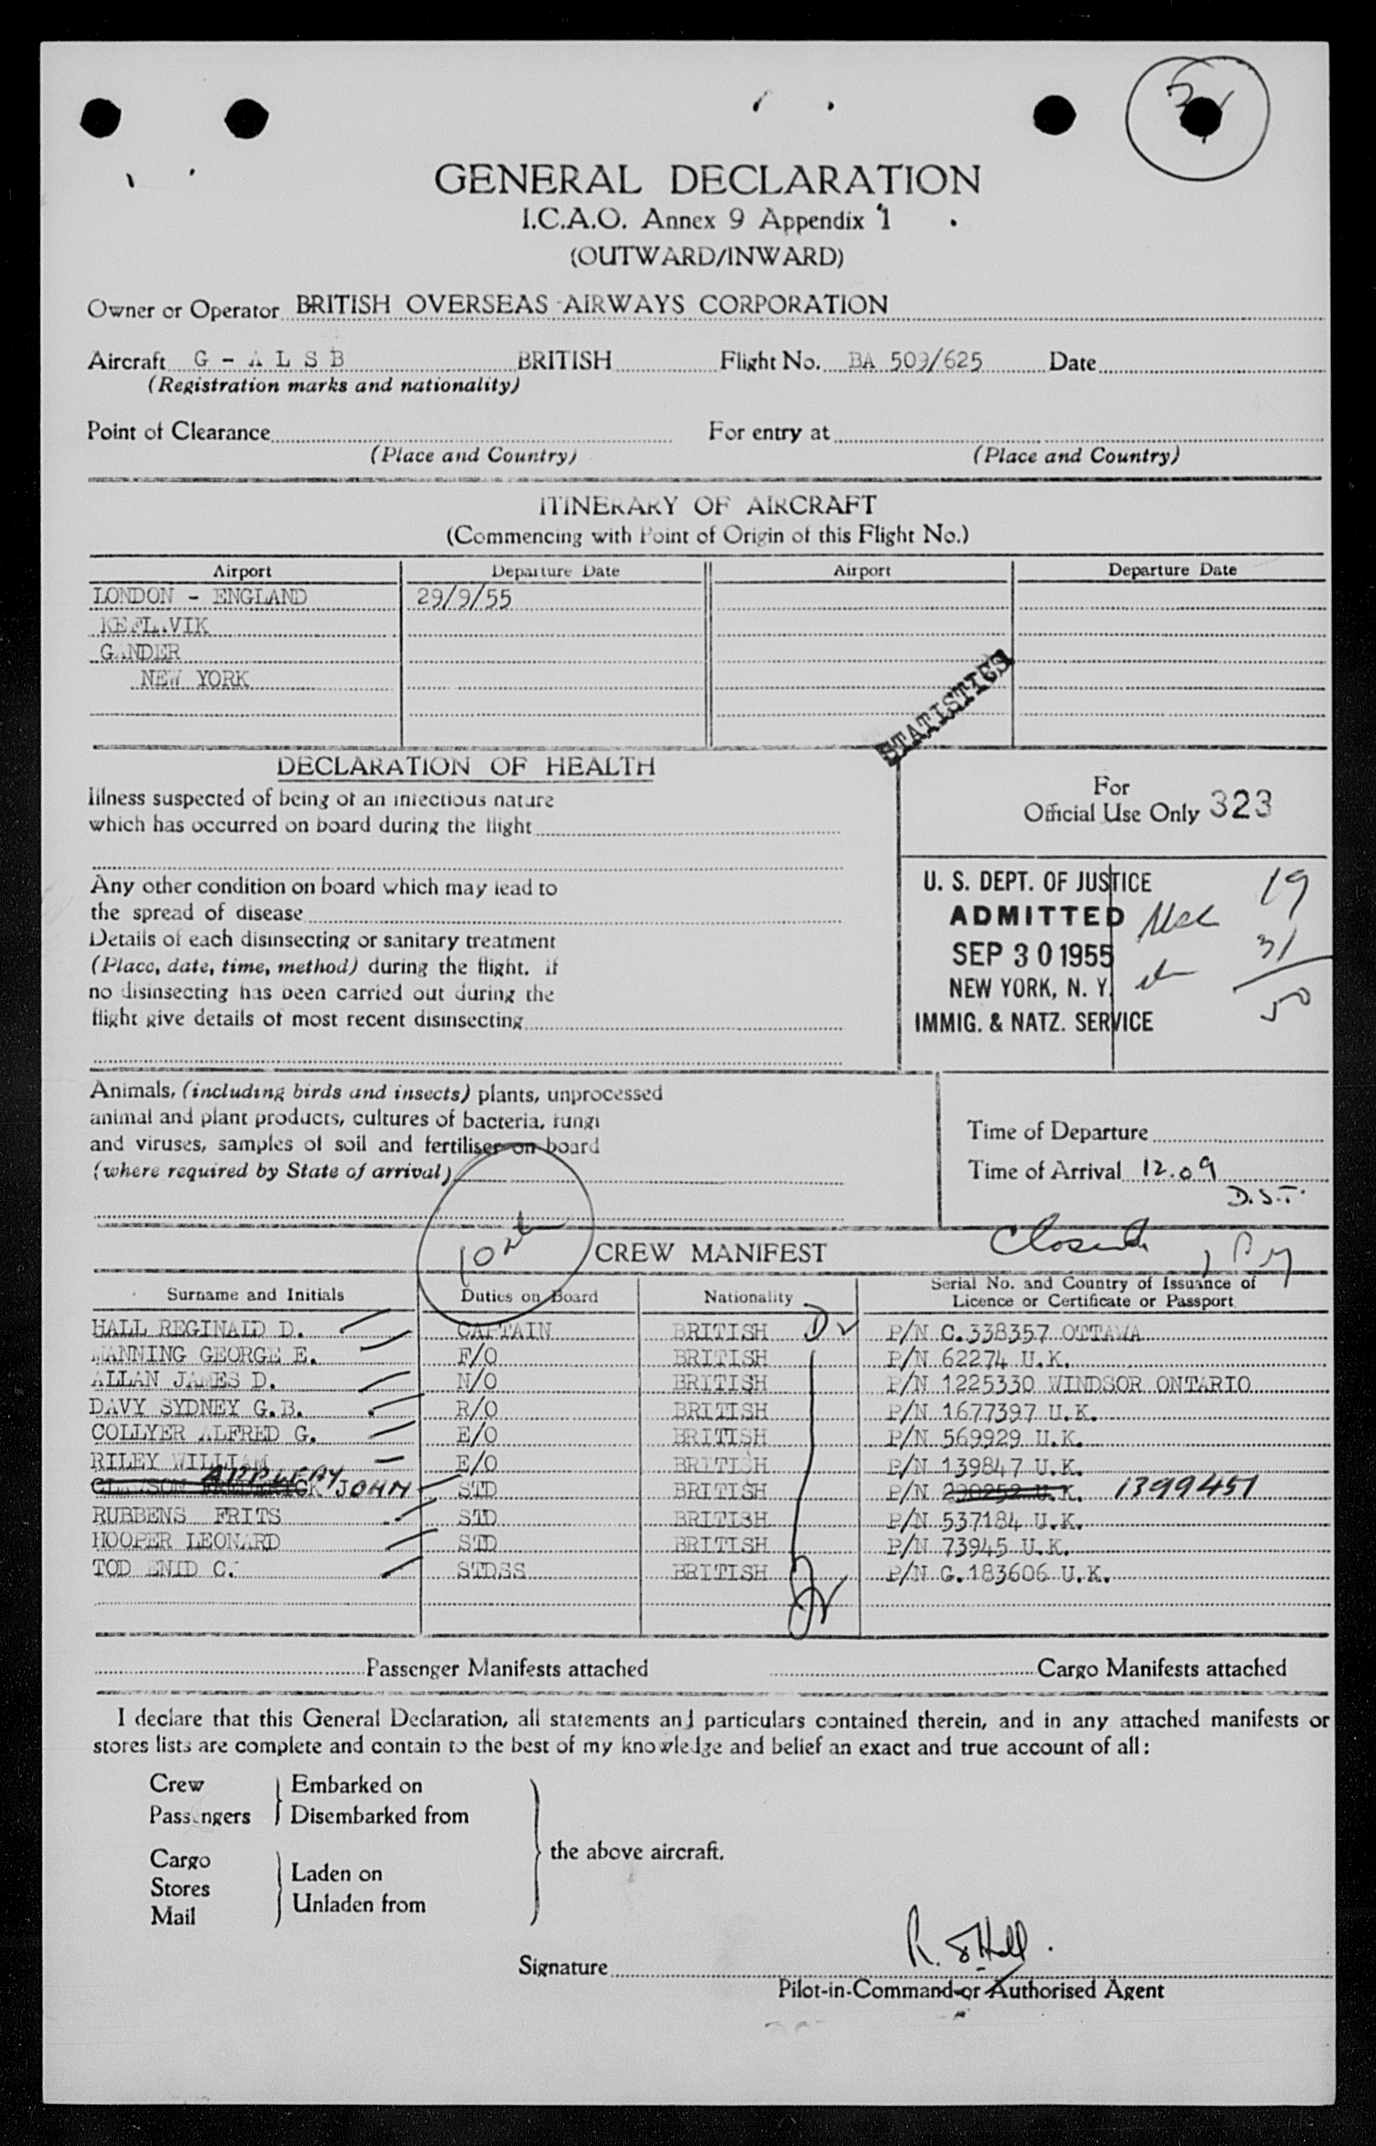 GENERAL DECLARATION
I.C.A.O. Annex 9 Appendix 1
(OUTWARD/INWARD)
Owner or Operator BRITISH OVERSEAS AIRWAYS CORPORATION
Aircraft G - A L S B BRITISH Flight No. BA 509/625 Date
(Registration marks and nationality)
Point of Clearance For entry at
(Place and Country) (Place and Country)
ITINERARY OF AIRCRAFT
(Commencing with Point of Origin of this Flight No.)
Airport Departure Date Airport Departure Date
LONDON - ENGLAND 29/9/55
KEFLAVIK
GANDER
NEW YORK
STATISTICS
DECLARATION OF HEALTH
Illness suspected of being of an infectious nature
which has occurred on board during the flight
For
Official Use Only 323
Any other condition on board which may lead to
the spread of disease
Details of each disinsecting or sanitary treatment
(Place, date, time, method) during the flight. if
no disinsecting has been carried out during the
flight give details of most recent disinsecting
U. S. DEPT. OF JUSTICE
ADMITTED
SEP 30 1955
NEW YORK, N. Y.
IMMIG. & NATZ. SERVICE
19
31
50
Animals, (including birds and insects) plants, unprocessed
animal and plant products, cultures of bacteria, fungi
and viruses, samples of soil and fertiliser on board
(where required by State of arrival)
Time of Departure
Time of Arrival 12.09
D.S.T.
CREW MANIFEST
Surname and Initials Duties on Board Nationality Serial No. and Country of Issuance of
Licence or Certificate or Passport
HALL REGINALD D. CAPTAIN BRITISH P/N C.338357 OTTAWA
MANNING GEORGE E. F/O BRITISH P/N 62274 U.K.
ALLAN JAMES D. N/O BRITISH P/N 1225330 WINDSOR ONTARIO
DAVY SYDNEY G.B. R/O BRITISH P/N 1677397 U.K.
COLLYER ALFRED G. E/O BRITISH P/N 569929 U.K.
RILEY WILLIAM E/O BRITISH P/N 139847 U.K.
APPLEBY JOHN STD BRITISH P/N 290252 U.K. 1399451
RUBBENS FRITS STD BRITISH P/N 537184 U.K.
HOOPER LEONARD STD BRITISH P/N 73945 U.K.
TOD ENID C. STDSS BRITISH P/N G.183606 U.K.
Passenger Manifests attached Cargo Manifests attached
I declare that this General Declaration, all statements and particulars contained therein, and in any attached manifests or
stores lists are complete and contain to the best of my knowledge and belief an exact and true account of all:
Crew Embarked on
Passengers Disembarked from
the above aircraft.
Cargo
Stores Laden on
Mail Unladen from
Signature
Pilot-in-Command or Authorised Agent